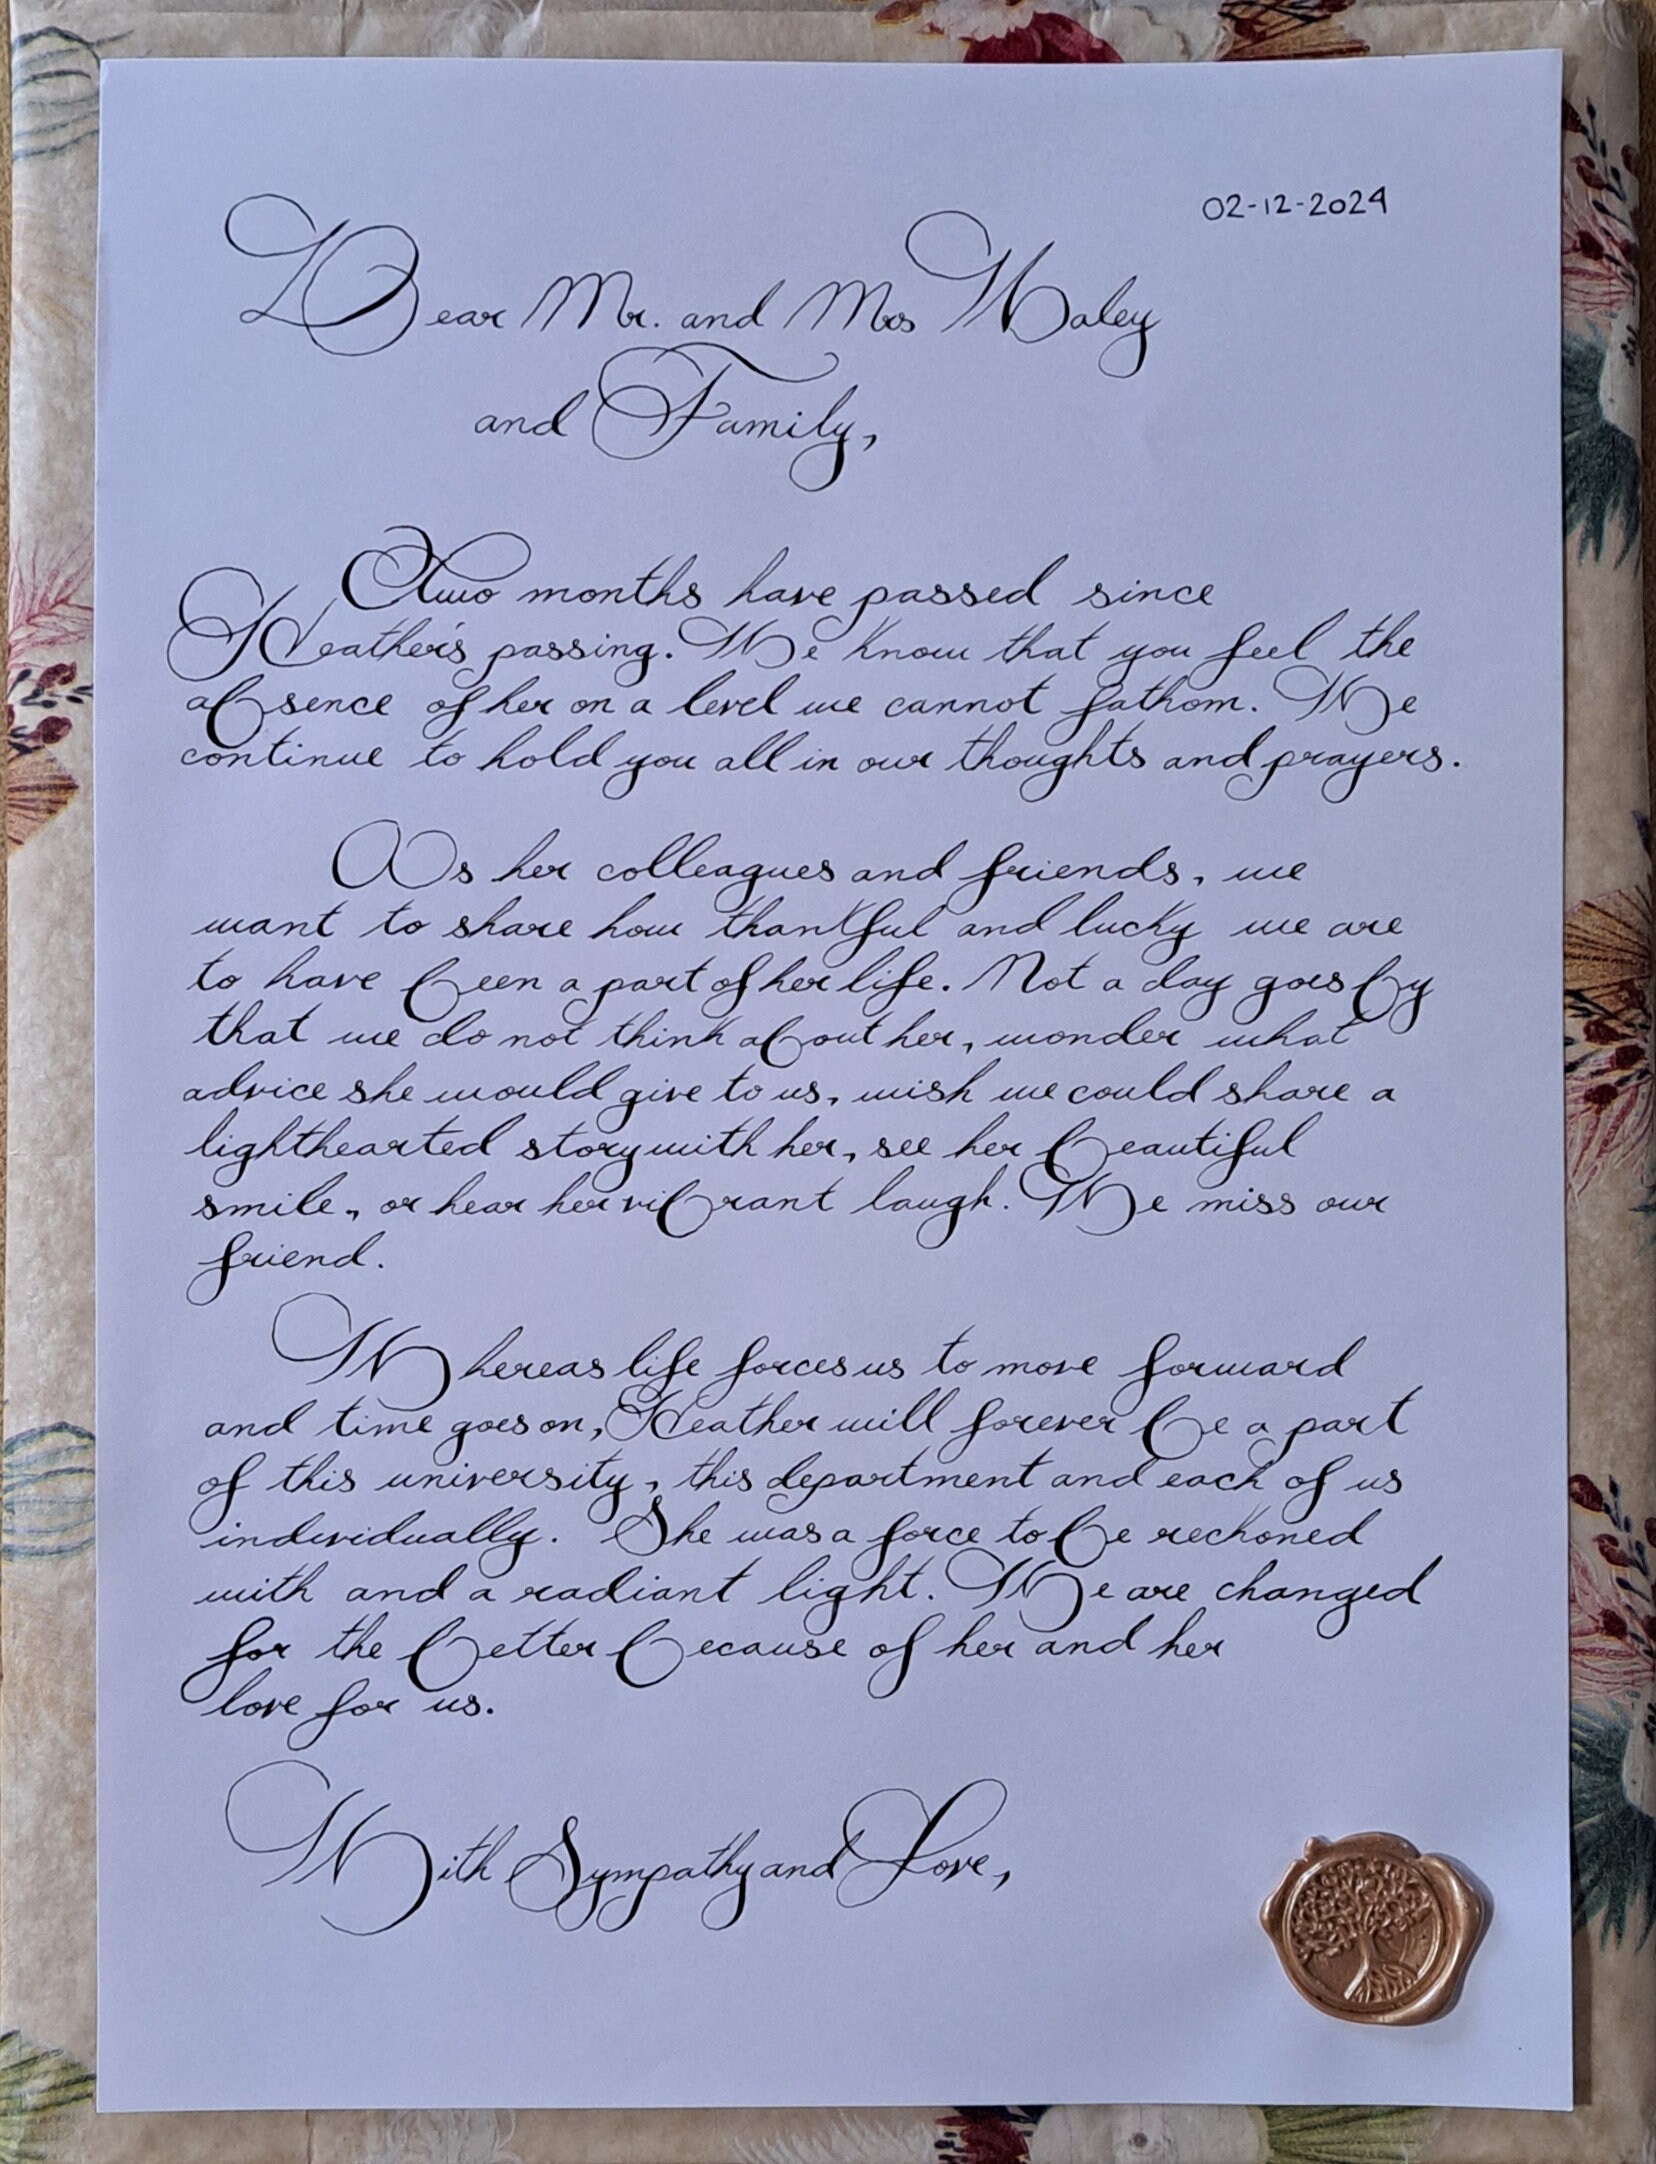 02-12-2024
Dear Mr. and Mrs Waley
and Family,
Two months have passed since
Heather's passing. We know that you feel the
absence of her on a level we cannot fathom. We
continue to hold you all in our thoughts and prayers.
As her colleagues and friends, we
want to share how thankful and lucky we are
to have been a part of her life. Not a day goes by
that we do not think about her, wonder what
advice she would give to us, wish we could share a
lighthearted story with her, see her beautiful
smile, or hear her vibrant laugh. We miss our
friend.
Whereas life forces us to move forward
and time goes on, Heather will forever be a part
of this university, this department and each of us
individually. She was a force to be reckoned
with and a radiant light. We are changed
for the better because of her and her
love for us.
With Sympathy and Love,